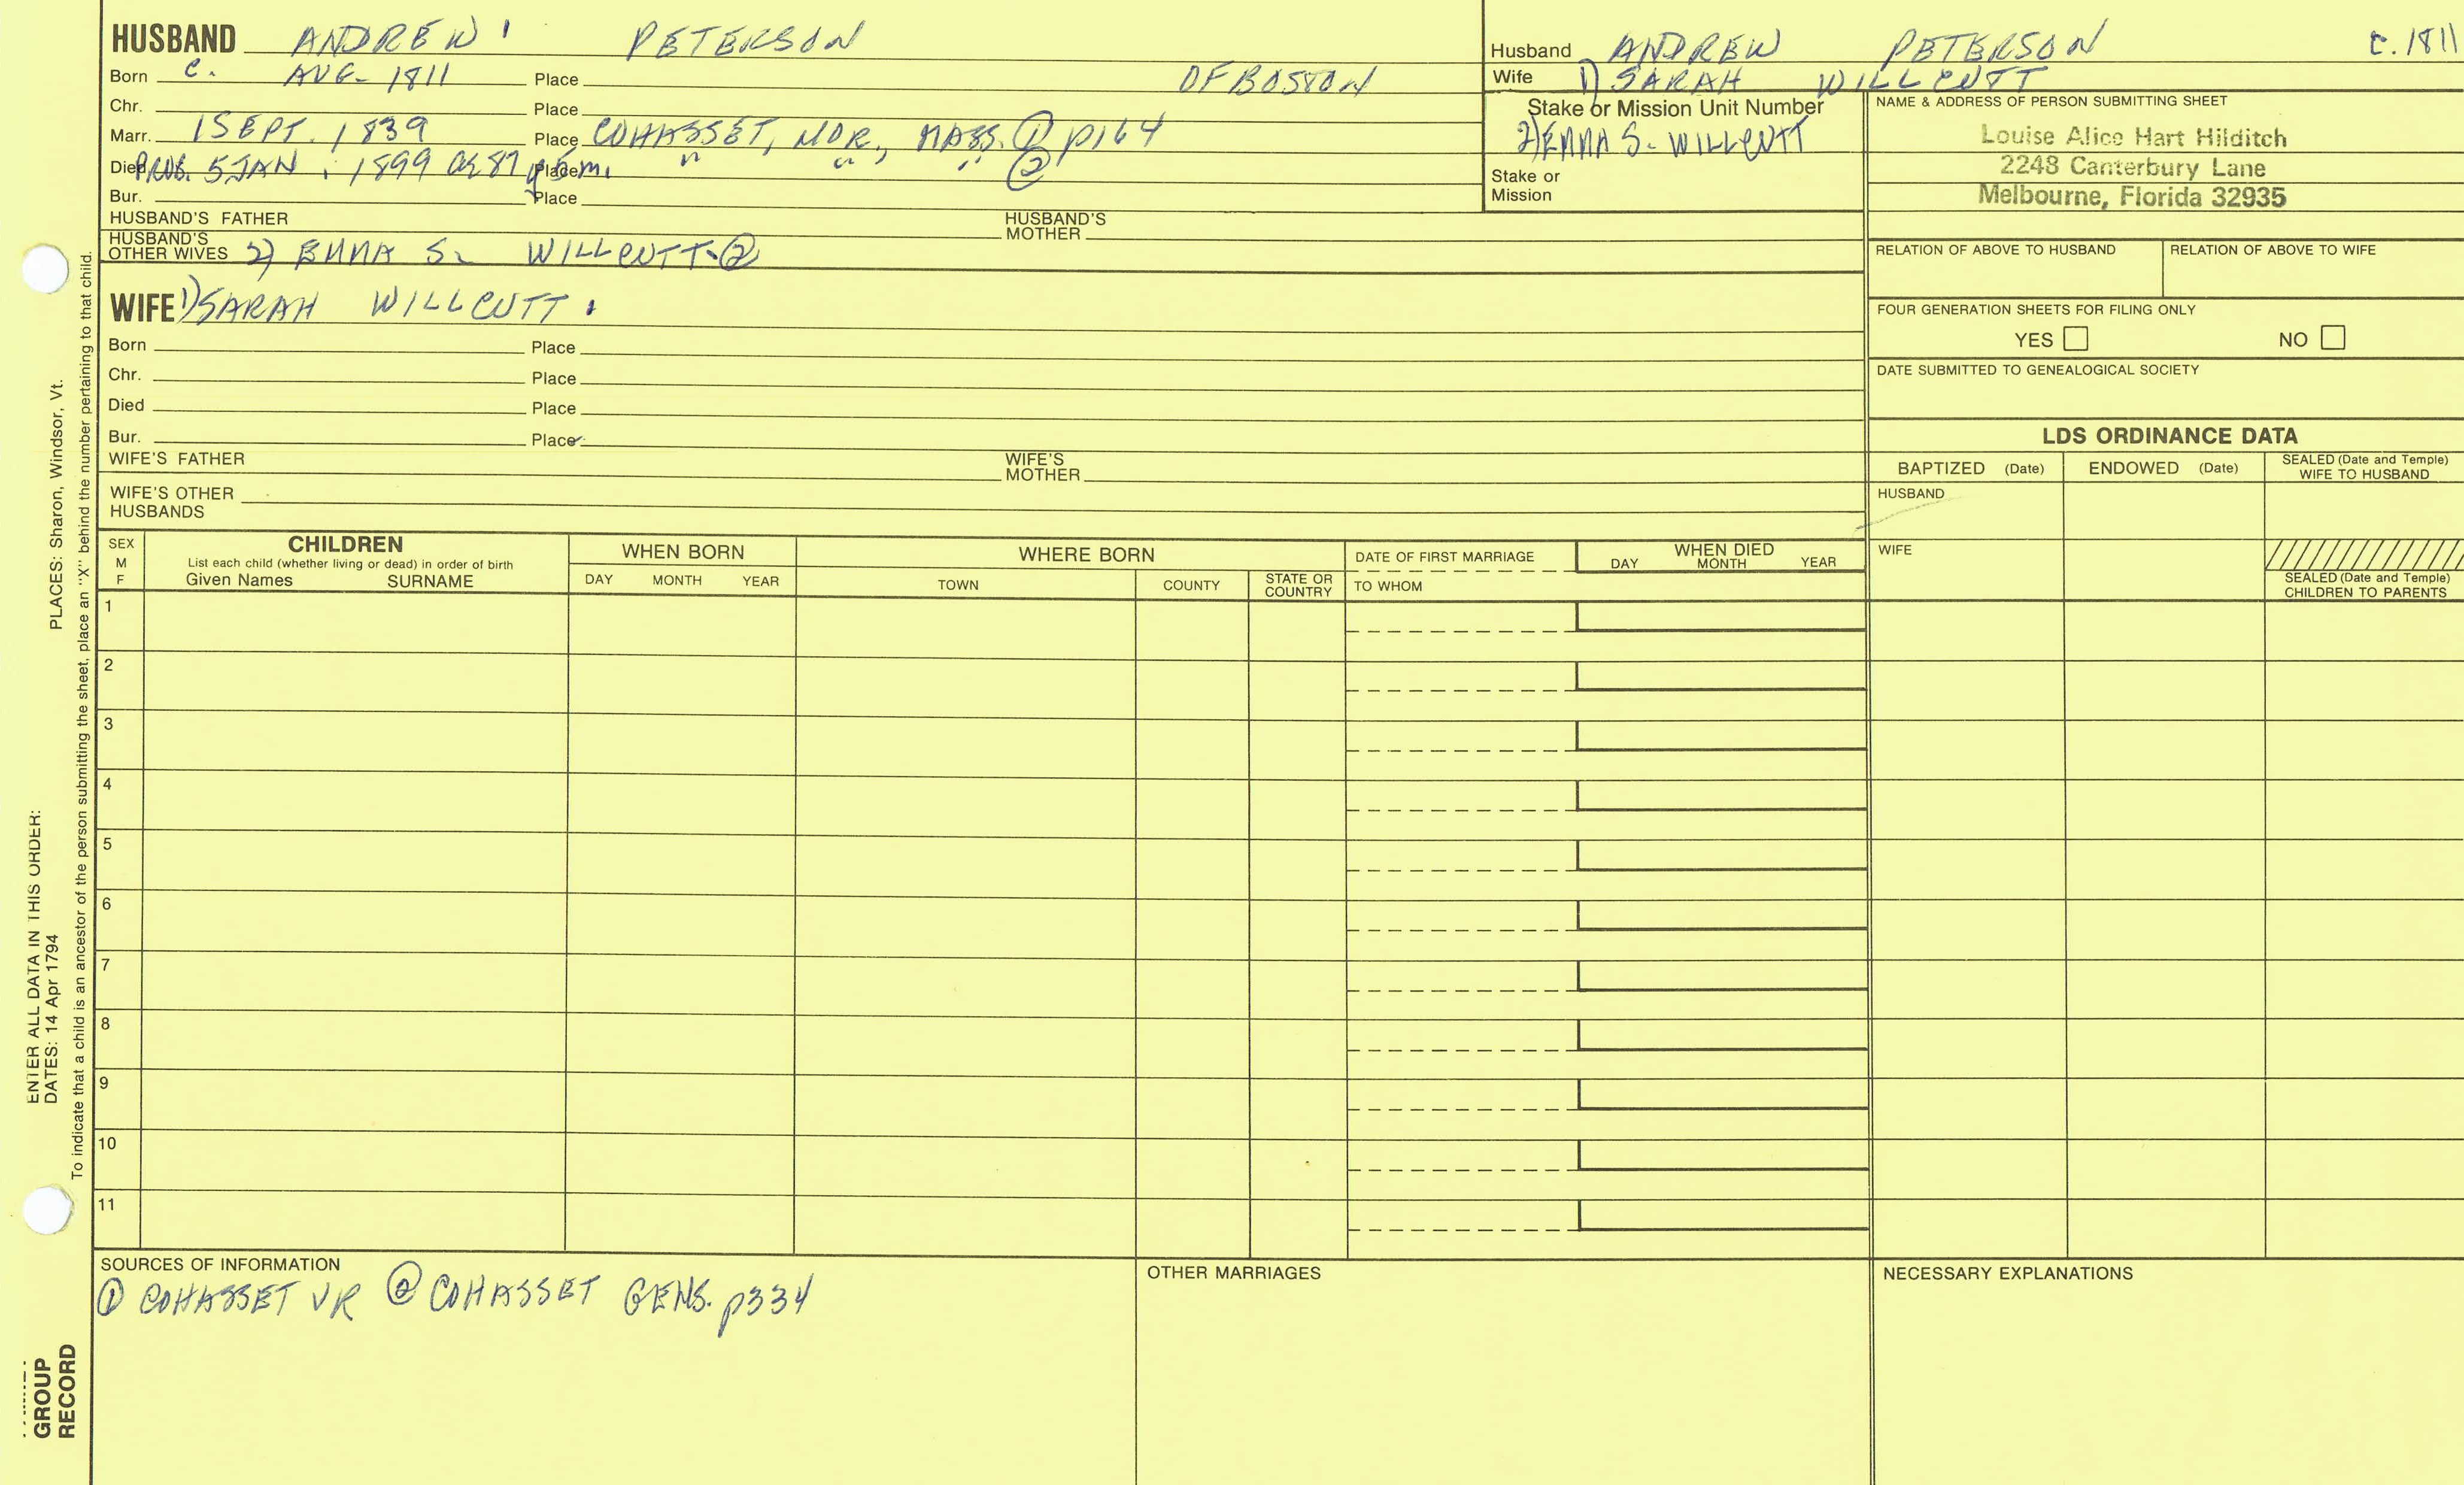 HUSBAND ANDREW PETERSON
Born C. AUG- 1811 Place OF BOSTON
Chr. Place
Marr. 1 SEPT. 1839 Place COHASSET, NOR., MASS. ① p164
Died PROB. 5 JAN. 1899 ae 87 y 5 m. Place " " " ②
Bur. Place
HUSBAND'S FATHER HUSBAND'S MOTHER
HUSBAND'S OTHER WIVES 2) EMMA S. WILLCUTT. ②
WIFE 1) SARAH WILLCUTT
Born Place
Chr. Place
Died Place
Bur. Place
WIFE'S FATHER WIFE'S MOTHER
WIFE'S OTHER HUSBANDS
Husband ANDREW PETERSON C. 1811
Wife 1) SARAH WILLCUTT
Stake or Mission Unit Number
2) EMMA S. WILLCUTT
Stake or Mission
NAME & ADDRESS OF PERSON SUBMITTING SHEET
Louise Alice Hart Hilditch
2248 Canterbury Lane
Melbourne, Florida 32935
RELATION OF ABOVE TO HUSBAND RELATION OF ABOVE TO WIFE
FOUR GENERATION SHEETS FOR FILING ONLY
YES NO
DATE SUBMITTED TO GENEALOGICAL SOCIETY
LDS ORDINANCE DATA
BAPTIZED (Date) ENDOWED (Date) SEALED (Date and Temple) WIFE TO HUSBAND
HUSBAND
WIFE
SEALED (Date and Temple) CHILDREN TO PARENTS
SEX M F
CHILDREN
List each child (whether living or dead) in order of birth
Given Names SURNAME
WHEN BORN
DAY MONTH YEAR
WHERE BORN
TOWN COUNTY STATE OR COUNTRY
DATE OF FIRST MARRIAGE
TO WHOM
WHEN DIED
DAY MONTH YEAR
1
2
3
4
5
6
7
8
9
10
11
SOURCES OF INFORMATION
① COHASSET VR ② COHASSET GENS. p334
OTHER MARRIAGES
NECESSARY EXPLANATIONS
ENTER ALL DATA IN THIS ORDER:
DATES: 14 Apr 1794 PLACES: Sharon, Windsor, Vt.
To indicate that a child is an ancestor of the person submitting the sheet, place an "X" behind the number pertaining to that child.
GROUP
RECORD